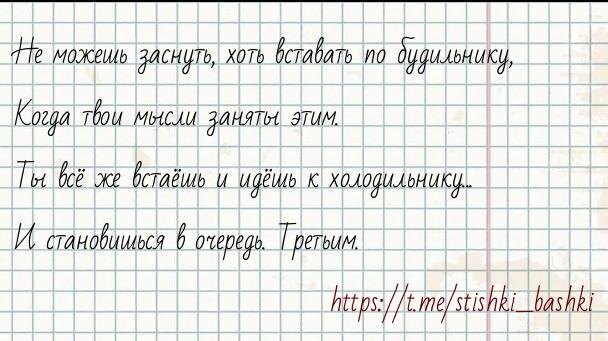 Не можешь заснуть, хоть вставать по будильнику,
Когда твои мысли заняты этим.
Ты всё же встаёшь и идёшь к холодильнику...
И становишься в очередь. Третьим.
https://t.me/stishki_bashki